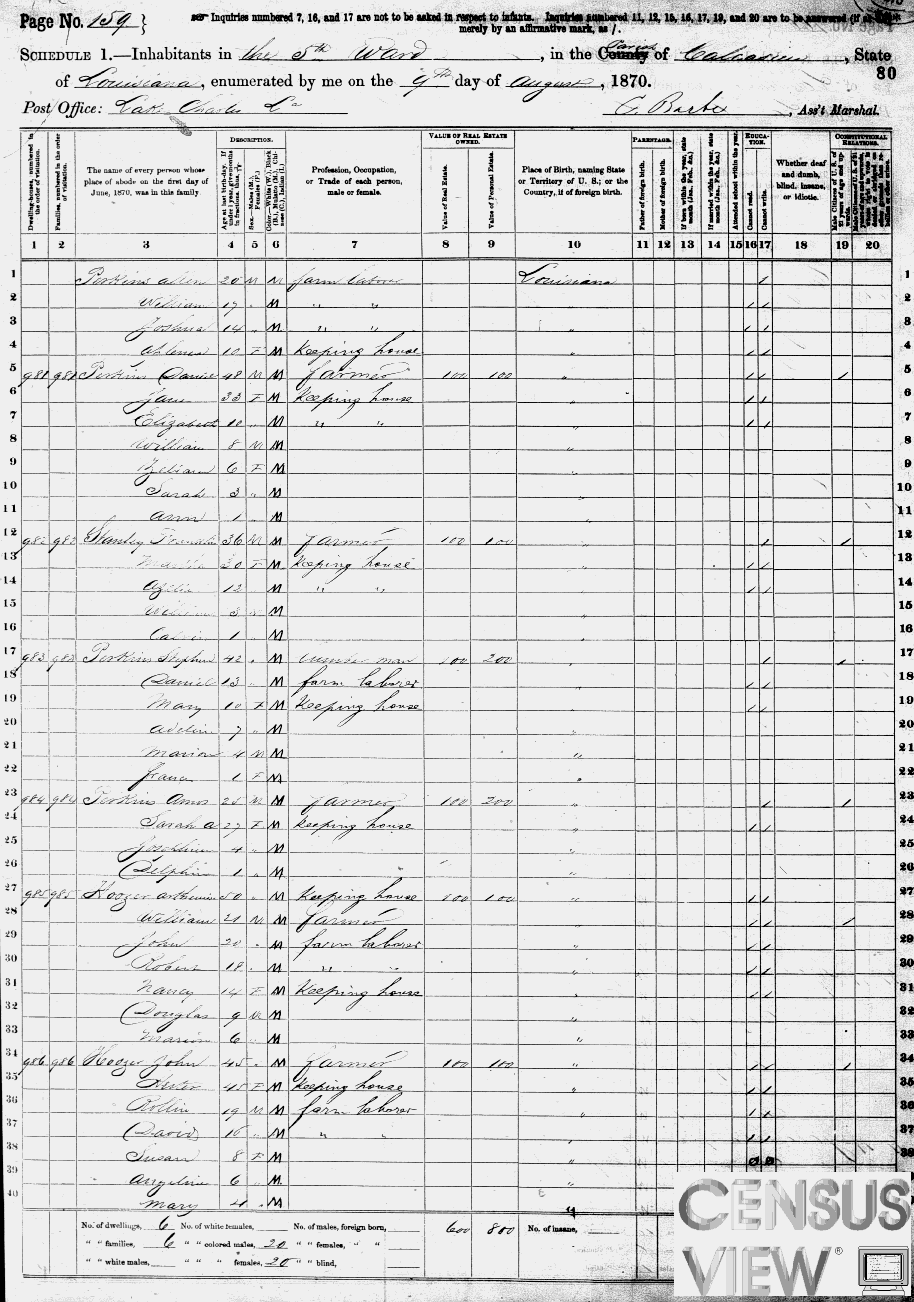 Page No. 159
Inquiries numbered 7, 16, and 17 are not to be asked in respect to infants. Inquiries numbered 11, 12, 15, 16, 17, 19, and 20 are to be answered (if at all)
merely by an affirmative mark, as /.
SCHEDULE 1.—Inhabitants in the 5th Ward, in the County Parish of Calcasieu, State
80
of Louisiana, enumerated by me on the 9th day of August, 1870.
Post Office: Lake Charles La , Ass't Marshal.
DESCRIPTION. VALUE OF REAL ESTATE OWNED. PARENTAGE. EDUCATION. CONSTITUTIONAL RELATIONS.
Dwelling-houses, numbered in the order of visitation. Families, numbered in the order of visitation. The name of every person whose place of abode on the first day of June, 1870, was in this family. Profession, Occupation, or Trade of each person, male or female. Value of Real Estate. Value of Personal Estate. Place of Birth, naming State or Territory of U. S.; or the Country, if of foreign birth. Father of foreign birth. Mother of foreign birth. Attended school within the year. Cannot read. Cannot write. Whether deaf and dumb, blind, insane, or idiotic.
1 2 3 4 5 6 7 8 9 10 11 12 13 14 15 16 17 18 19 20
1 Perkins Allen 20 M M farm laborer Louisiana / 1
2 William 17 " M " " " / / 2
3 Joshua 14 " M " " " / / 3
4 10 F M Keeping house " / / 4
5 981 981 Perkins Daniel 48 M M Farmer 100 100 " / / / 5
6 Jane 33 F M Keeping house " / / 6
7 Elizabeth 10 " M " " " / / 7
8 William 8 M M " 8
9 6 F M " 9
10 Sarah 3 " M " 10
11 Ann 1 " M " 11
12 982 982 Stanley Franklin 36 M M Farmer 100 100 " / / 12
13 30 F M Keeping house " / / 13
14 12 " M " " " / / 14
15 William 3 M M " 15
16 1 " M " 16
17 983 983 Perkins Stephen 42 " M 100 200 " / / 17
18 Daniel 13 " M farm laborer " / / 18
19 Mary 10 F M Keeping house " / / 19
20 Adelin 7 " M " 20
21 Marion 4 M M " 21
22 1 F M " 22
23 984 984 Perkins Amos 25 M M Farmer 100 200 " / / 23
24 Sarah A 27 F M Keeping house " / / 24
25 Josephine 4 " M " 25
26 Delphin 1 " M " 26
27 985 985 Hoozer 50 " M Keeping house 100 100 " / / 27
28 William 21 M M Farmer " / / / 28
29 John 20 " M farm laborer " / / 29
30 Robert 18 " M " " " / / 30
31 Nancy 14 F M Keeping house " / / 31
32 Douglas 9 M M " 32
33 Marion 6 " M " 33
34 986 986 Hoozer John 45 " M Farmer 100 100 " / / / 34
35 45 F M Keeping house " / / 35
36 Rollin 19 M M farm laborer " / / 36
37 David 16 " M " " " / / 37
38 Susan 8 F M " 38
39 Angeline 6 " M " 39
40 Mary 4 " M "
No. of dwellings, 6 No. of white females, No. of males, foreign born, 600 800 No. of insane,
" " families, 6 " " colored males, 20 " " females, " "
" " white males, " " " females, 20 " " blind,
CENSUS
VIEW ®